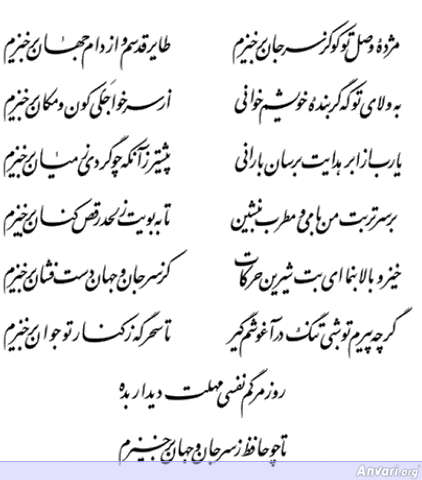 مژدهٔ وصل تو کو کز سر جان برخیزم طایر قدسم و از دام جهان برخیزم
به ولای تو که گر بندهٔ خویشم خوانی از سر خواجگی کون و مکان برخیزم
یارب از ابر هدایت برسان بارانی پیشتر زآنکه چو گردی ز میان برخیزم
بر سر تربت من با می و مطرب بنشین تا به بویت ز لحد رقص کنان برخیزم
خیز و بالا بنما ای بت شیرین حرکات کز سر جان و جهان دست فشان برخیزم
گرچه پیرم تو شبی تنگ در آغوشم گیر تا سحرگه ز کنار تو جوان برخیزم
روز مرگم نفسی مهلت دیدار بده
تا چو حافظ ز سر جان و جهان برخیزم
Anvari.org